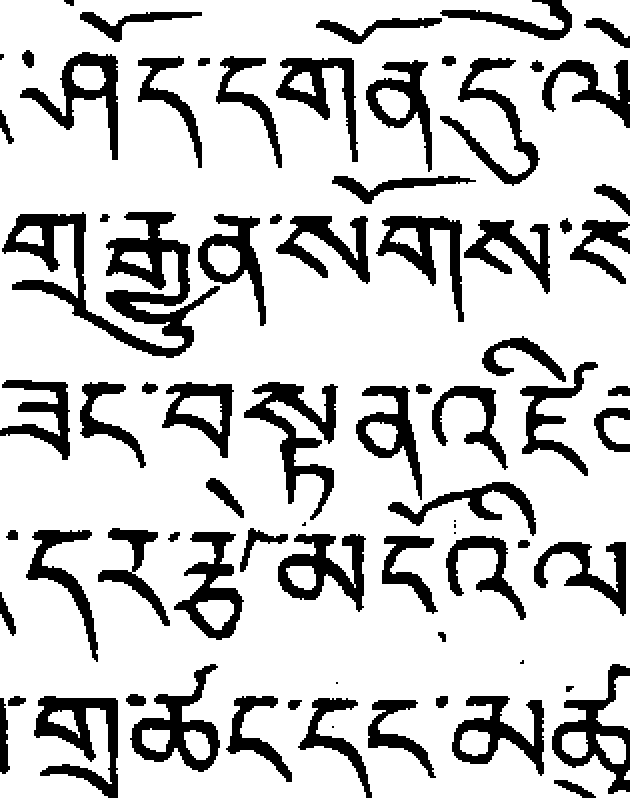 ཤོད་དགོན་དུ་ལ
གྲུ་རྒྱུན་སོགས་སེ
ཟང་བསྟན་འཛི
དར་རྩེ་མདོའི་ལ
གྲ་ཚང་དང་མཚ